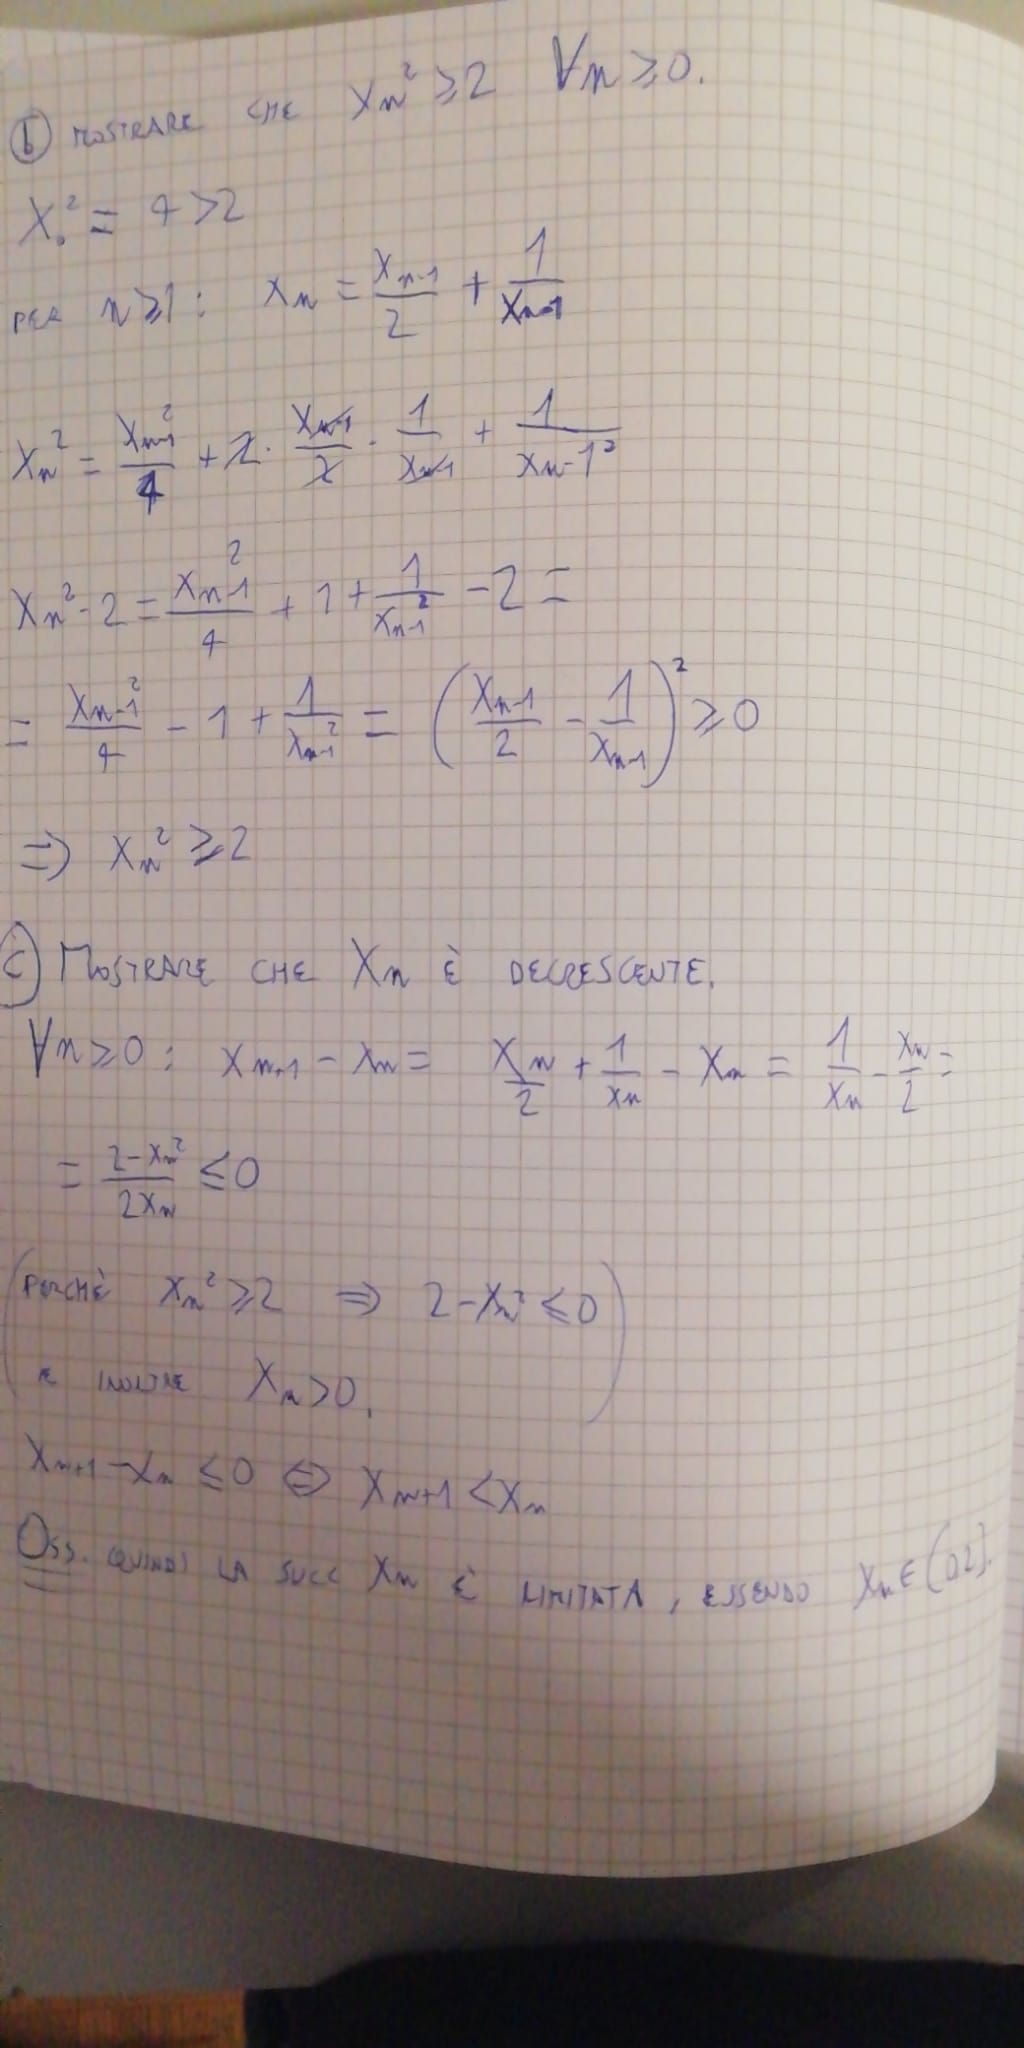 ⓑ MOSTRARE CHE Xn² ≥ 2 ∀n ≥ 0.
X₀² = 4 > 2
PER n ≥ 1 : Xn = Xn-1/2 + 1/Xn-1
Xn² = Xn-1²/4 + 2 · Xn-1/2 · 1/Xn-1 + 1/Xn-1²
Xn² - 2 = Xn-1²/4 + 1 + 1/Xn-1² - 2 =
= Xn-1²/4 - 1 + 1/Xn-1² = (Xn-1/2 - 1/Xn-1)² ≥ 0
⇒ Xn² ≥ 2
ⓒ MOSTRARE CHE Xn È DECRESCENTE.
∀n ≥ 0 : Xn+1 - Xn = Xn/2 + 1/Xn - Xn = 1/Xn - Xn/2 =
= 2-Xn²/2Xn ≤ 0
(PERCHÈ Xn² ≥ 2 ⇒ 2 - Xn² ≤ 0
E INOLTRE Xn > 0.)
Xn+1 - Xn ≤ 0 ⇔ Xn+1 < Xn
OSS. QUINDI LA SUCC Xn È LIMITATA, ESSENDO Xn ∈ (0,2].